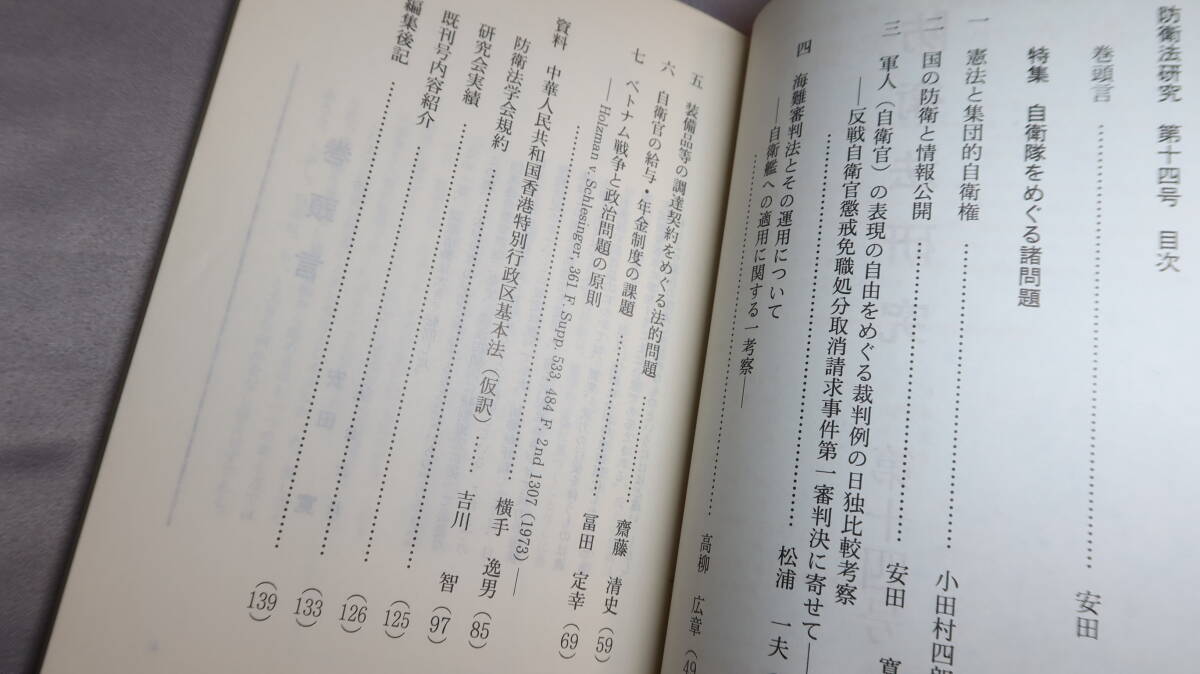 防衛法研究 第十四号 目次
巻頭言……安田
特集 自衛隊をめぐる諸問題
一 憲法と集団的自衛権……小田村四郎
二 国の防衛と情報公開……安田 寛
三 軍人(自衛官)の表現の自由をめぐる裁判例の日独比較考察
――反戦自衛官懲戒免職処分取消請求事件第一審判決に寄せて――
……松浦 一夫
四 海難審判法とその運用について
――自衛艦への適用に関する一考察――
……高柳 広章 (49
五 装備品等の調達契約をめぐる法的問題……齋藤 清史 (59)
六 自衛官の給与・年金制度の課題……冨田 定幸 (69)
七 ベトナム戦争と政治問題の原則
――Holzman v. Schlesinger, 361 F. Supp. 533, 484 F. 2nd 1307 (1973)――
……横手 逸男 (85)
資料 中華人民共和国香港特別行政区基本法(仮訳)……吉川 智 (97)
防衛法学会規約……(125)
研究会実績……(126)
既刊号内容紹介……(133)
編集後記……(139)
巻頭言